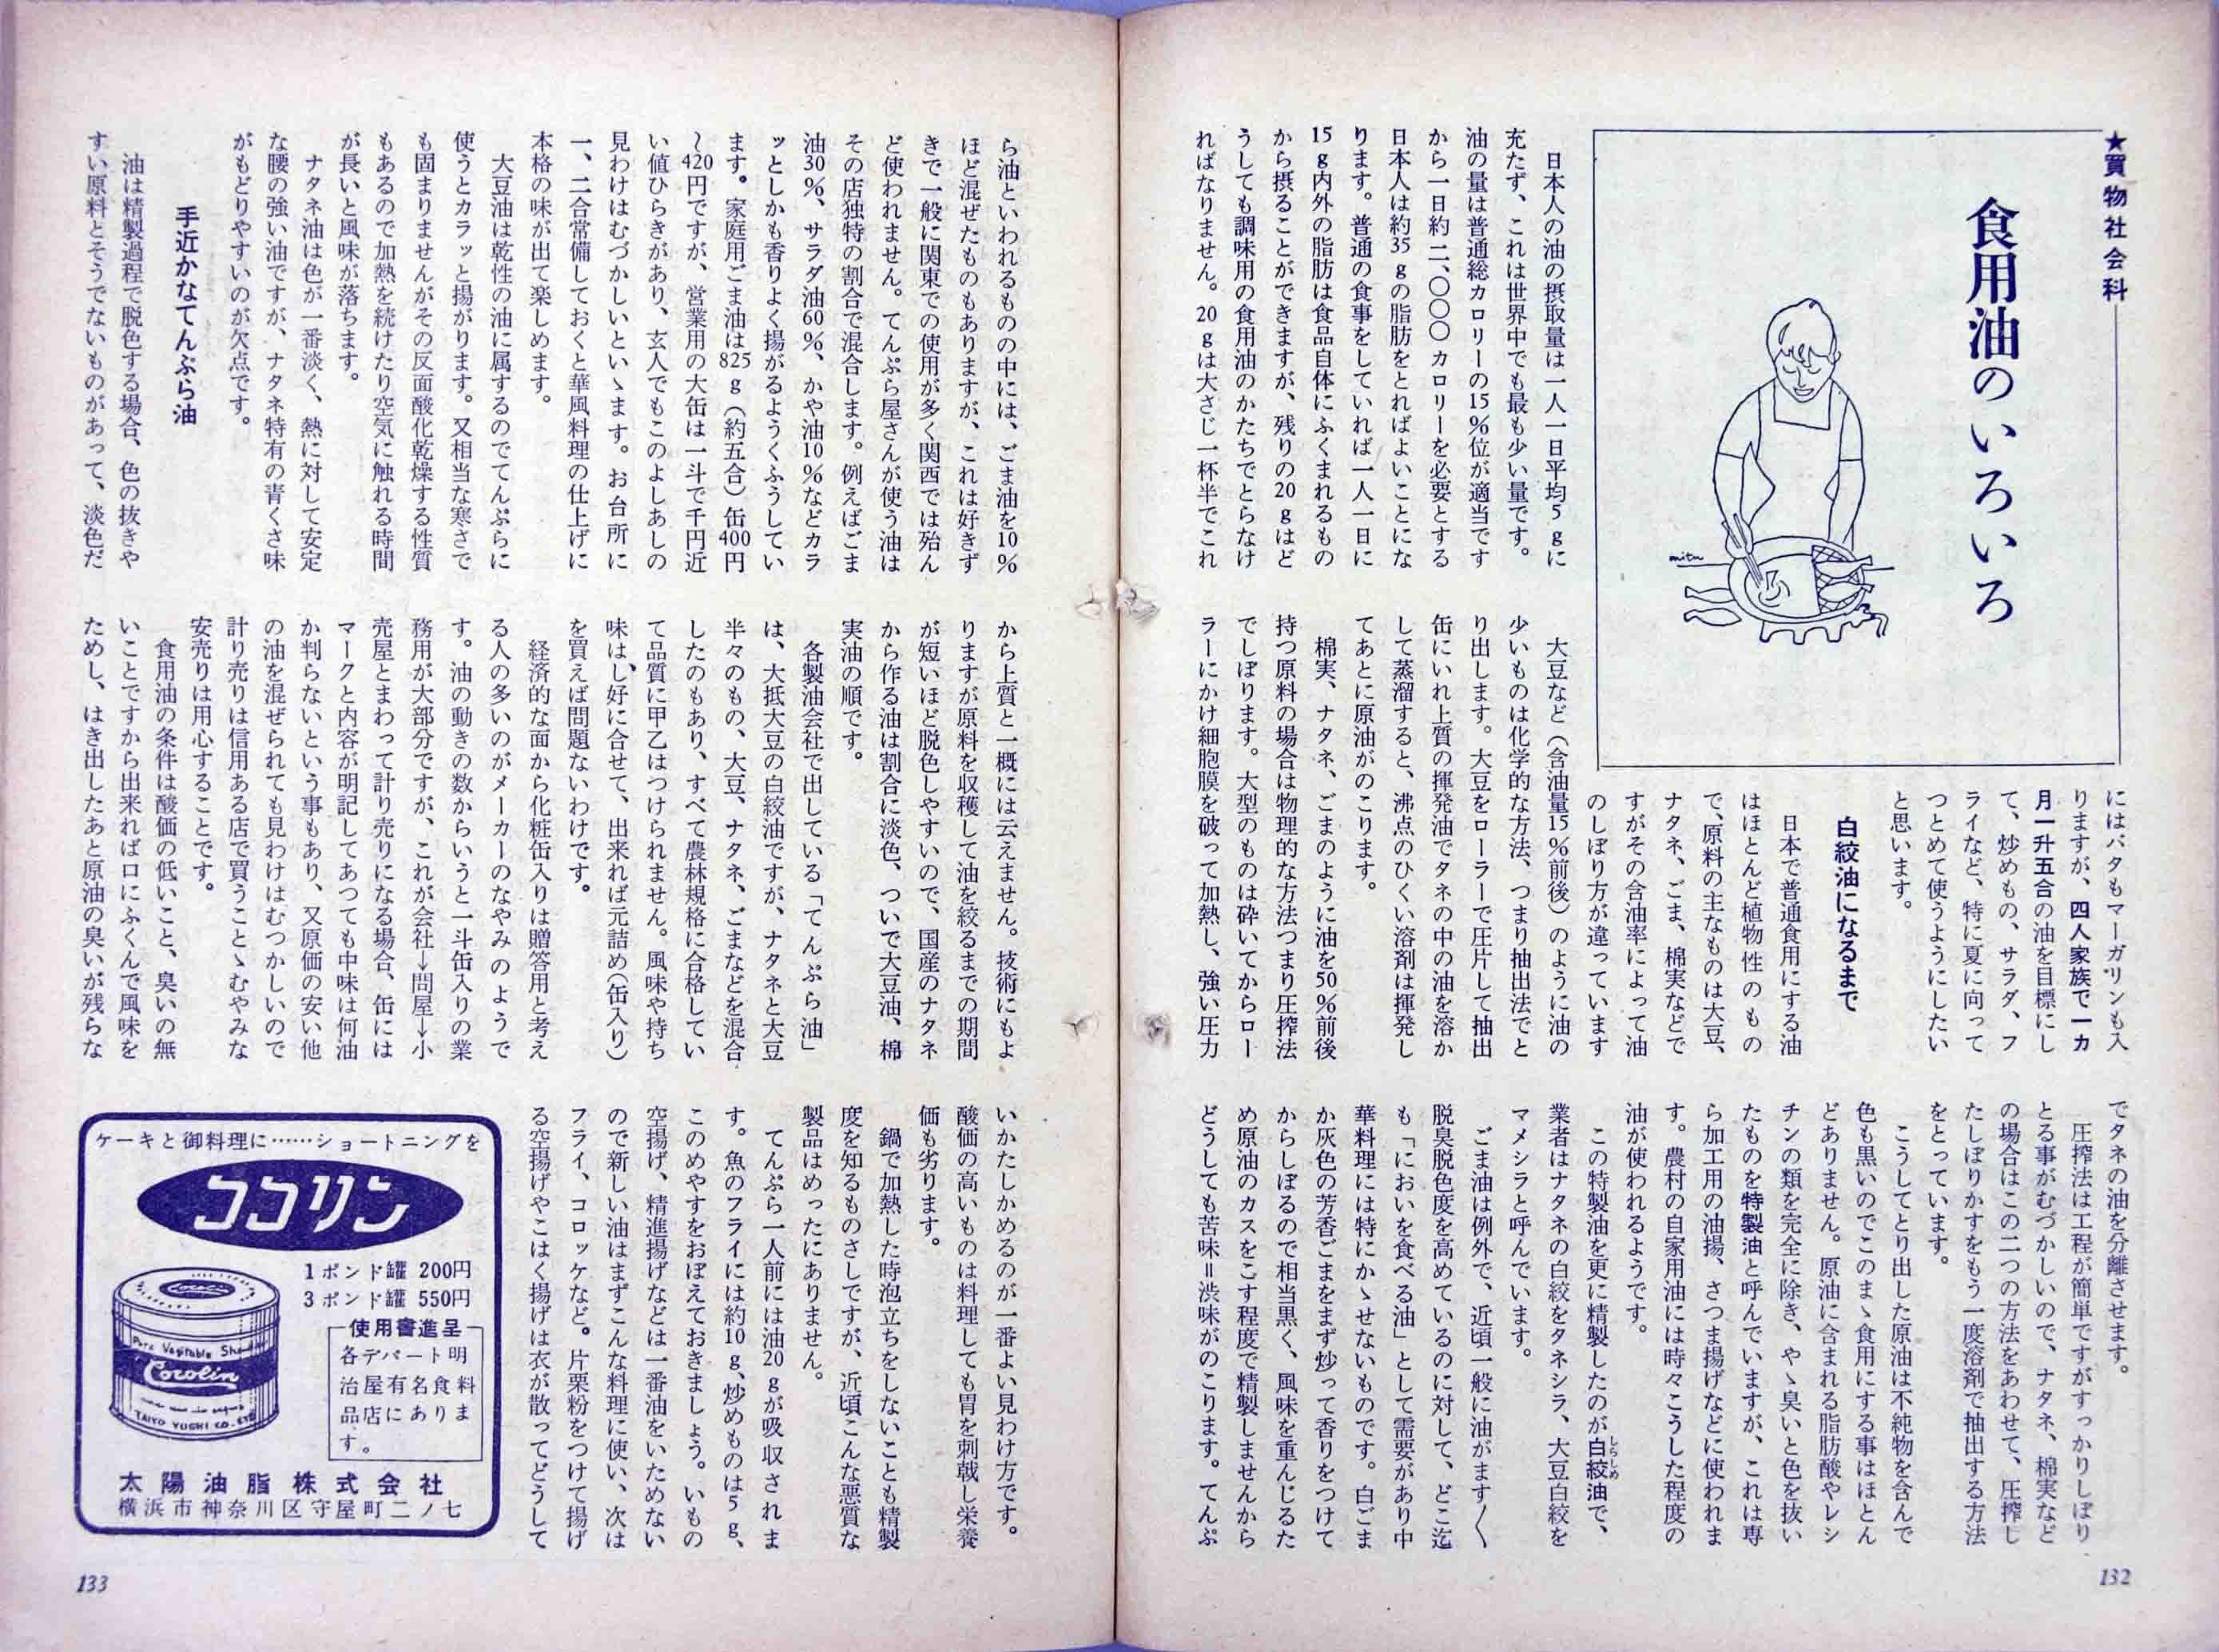 ★買物社会科
食用油のいろいろ
mitu
日本人の油の摂取量は一人一日平均5gに
充たず、これは世界中でも最も少い量です。
油の量は普通総カロリーの15％位が適当です
から一日約二、〇〇〇カロリーを必要とする
日本人は約35gの脂肪をとればよいことにな
ります。普通の食事をしていれば一人一日に
15g内外の脂肪は食品自体にふくまれるもの
から摂ることができますが、残りの20gはど
うしても調味用の食用油のかたちでとらなけ
ればなりません。20gは大さじ一杯半でこれ
にはバタもマーガリンも入
りますが、四人家族で一カ
月一升五合の油を目標にし
て、炒めもの、サラダ、フ
ライなど、特に夏に向って
つとめて使うようにしたい
と思います。
白絞油になるまで
日本で普通食用にする油
はほとんど植物性のもの
で、原料の主なものは大豆、
ナタネ、ごま、棉実などで
すがその含油率によって油
のしぼり方が違っています
大豆など（含油量15％前後）のように油の
少いものは化学的な方法、つまり抽出法でと
り出します。大豆をローラーで圧片して抽出
缶にいれ上質の揮発油でタネの中の油を溶か
して蒸溜すると、沸点のひくい溶剤は揮発し
てあとに原油がのこります。
棉実、ナタネ、ごまのように油を50％前後
持つ原料の場合は物理的な方法つまり圧搾法
でしぼります。大型のものは砕いてからロー
ラーにかけ細胞膜を破って加熱し、強い圧力
でタネの油を分離させます。
圧搾法は工程が簡単ですがすっかりしぼり
とる事がむづかしいので、ナタネ、棉実など
の場合はこの二つの方法をあわせて、圧搾し
たしぼりかすをもう一度溶剤で抽出する方法
をとっています。
こうしてとり出した原油は不純物を含んで
色も黒いのでこのまゝ食用にする事はほとん
どありません。原油に含まれる脂肪酸やレシ
チンの類を完全に除き、やゝ臭いと色を抜い
たものを特製油と呼んでいますが、これは専
ら加工用の油揚、さつま揚げなどに使われま
す。農村の自家用油には時々こうした程度の
油が使われるようです。
この特製油を更に精製したのが白絞油で、
しらしめ
業者はナタネの白絞をタネシラ、大豆白絞を
マメシラと呼んでいます。
ごま油は例外で、近頃一般に油がます〱
脱臭脱色度を高めているのに対して、どこ迄
も「においを食べる油」として需要があり中
華料理には特にかゝせないものです。白ごま
か灰色の芳香ごまをまず炒って香りをつけて
からしぼるので相当黒く、風味を重んじるた
め原油のカスをこす程度で精製しませんから
どうしても苦味＝渋味がのこります。てんぷ
132
ら油といわれるものの中には、ごま油を10％
ほど混ぜたものもありますが、これは好きず
きで一般に関東での使用が多く関西では殆ん
ど使われません。てんぷら屋さんが使う油は
その店独特の割合で混合します。例えばごま
油30％、サラダ油60％、かや油10％などカラ
ッとしかも香りよく揚がるようくふうしてい
ます。家庭用ごま油は825g（約五合）缶400円
～420円ですが、営業用の大缶は一斗で千円近
い値ひらきがあり、玄人でもこのよしあしの
見わけはむづかしいといゝます。お台所に
一、二合常備しておくと華風料理の仕上げに
本格の味が出て楽しめます。
大豆油は乾性の油に属するのでてんぷらに
使うとカラッと揚がります。又相当な寒さで
も固まりませんがその反面酸化乾燥する性質
もあるので加熱を続けたり空気に触れる時間
が長いと風味が落ちます。
ナタネ油は色が一番淡く、熱に対して安定
な腰の強い油ですが、ナタネ特有の青くさ味
がもどりやすいのが欠点です。
手近かなてんぷら油
油は精製過程で脱色する場合、色の抜きや
すい原料とそうでないものがあって、淡色だ
から上質と一概には云えません。技術にもよ
りますが原料を収穫して油を絞るまでの期間
が短いほど脱色しやすいので、国産のナタネ
から作る油は割合に淡色、ついで大豆油、棉
実油の順です。
各製油会社で出している「てんぷら油」
は、大抵大豆の白絞油ですが、ナタネと大豆
半々のもの、大豆、ナタネ、ごまなどを混合
したのもあり、すべて農林規格に合格してい
て品質に甲乙はつけられません。風味や持ち
味はし好に合せて、出来れば元詰め（缶入り）
を買えば問題ないわけです。
経済的な面から化粧缶入りは贈答用と考え
る人の多いのがメーカーのなやみのようで
す。油の動きの数からいうと一斗缶入りの業
務用が大部分ですが、これが会社→問屋→小
売屋とまわって計り売りになる場合、缶には
マークと内容が明記してあつても中味は何油
か判らないという事もあり、又原価の安い他
の油を混ぜられても見わけはむつかしいので
計り売りは信用ある店で買うことゝむやみな
安売りは用心することです。
食用油の条件は酸価の低いこと、臭いの無
いことですから出来れば口にふくんで風味を
ためし、はき出したあと原油の臭いが残らな
いかたしかめるのが一番よい見わけ方です。
酸価の高いものは料理しても胃を刺戟し栄養
価も劣ります。
鍋で加熱した時泡立ちをしないことも精製
度を知るものさしですが、近頃こんな悪質な
製品はめったにありません。
てんぷら一人前には油20gが吸収されま
す。魚のフライには約10g、炒めものは5g、
このめやすをおぼえておきましょう。いもの
空揚げ、精進揚げなどは一番油をいためない
ので新しい油はまずこんな料理に使い、次は
フライ、コロッケなど。片栗粉をつけて揚げ
る空揚げやこはく揚げは衣が散ってどうして
ケーキと御料理に……ショートニングを
ココリン
1ポンド罐 200円
3ポンド罐 550円
使用書進呈
各デパート明
治屋有名食料
品店にありま
す。
Pure Vegetable Sho
Cocolin
TAIYO YUSHI CO. LTD
太陽油脂株式会社
横浜市神奈川区守屋町二ノ七
133